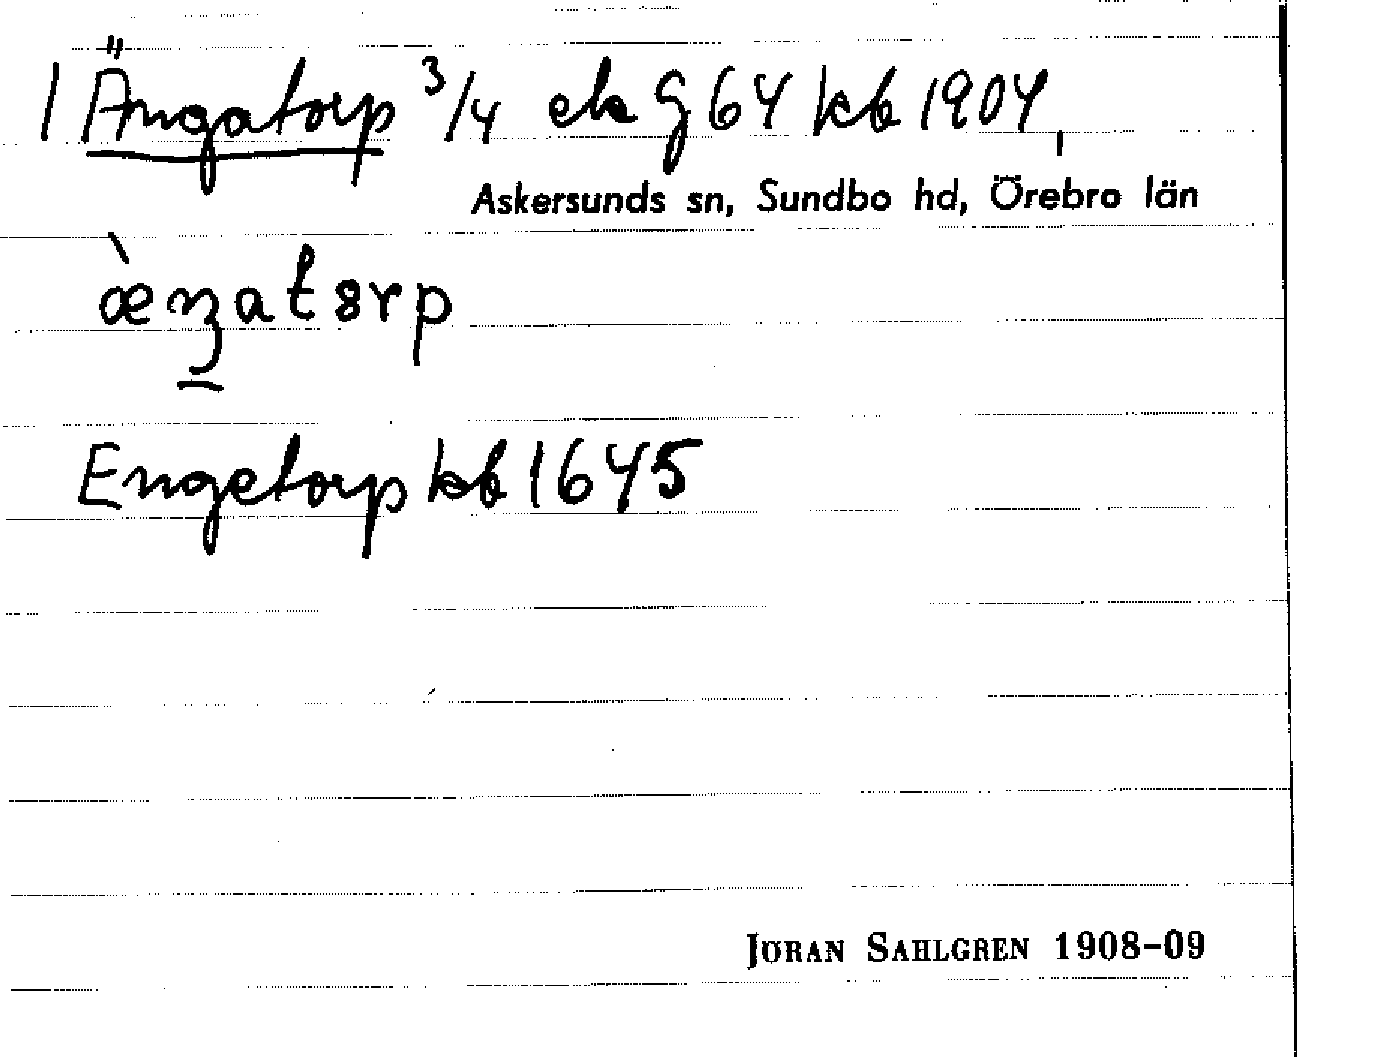 1 Ängatorp 3/4 ek G 64 kb 1904,
Askersunds sn, Sundbo hd, Örebro län
æ̀ŋatɷrp
Engetorp kb 1645
JÖRAN SAHLGREN 1908-09